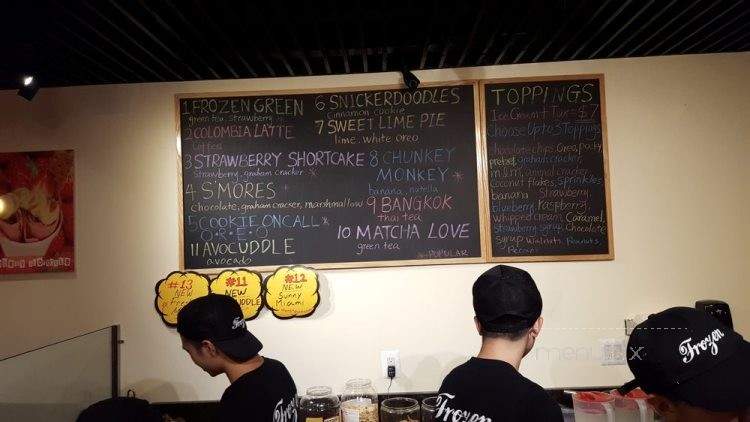 1 FROZEN GREEN
green tea, strawberry *
2 COLOMBIA LATTE
Coffee
3 STRAWBERRY SHORTCAKE
Strawberry, graham cracker *
4 S'MORES *
chocolate, graham cracker, marshmallow
5 COOKIE ON CALL *
O·R·E·O
11 AVOCUDDLE
avocado
6 SNICKERDOODLES
Cinnamon cookie
7 SWEET LIME PIE
lime, white oreo
8 CHUNKEY
MONKEY *
banana, nutella
9 BANGKOK
thai tea
10 MATCHA LOVE
green tea
POPULAR
TOPPINGS
Ice Cream + Tax = $7
Choose Up to 3 Toppings
chocolate chips, Oreo, pocky
pretzel, graham cracker,
m&m, animal cracker
coconut flakes, sprinkles
banana Strawberry,
blueberry, Raspberry,
whipped cream, Caramel,
Strawberry syrup, Chocolate
syrup Walnuts, Peanuts,
Pecans
#13
NEW
#11
NEW
#12
NEW
Sunny
Miami
Frozen
Frozen
Frozen
menupix